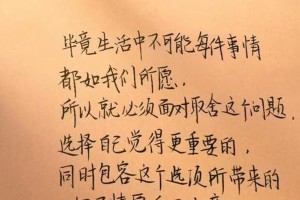 毕竟生活中不可能每件事情
都如我们所愿,
所以就必须面对取舍这个问题,
选择自己觉得更重要的,
同时包容这个选项所带来的